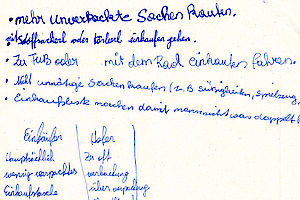 • mehr unverpackte Sachen kaufen.
mit Stoffsackerl oder Körberl einkaufen gehen.
• Zu Fuß oder mit dem Rad einkaufen fahren.
• Nicht unnötige Sachen kaufen (z.B Süßigkeiten, Spielzeug,
• Einkaufsliste machen damit man nicht was doppelt k
Einkaufen Hofer
Hauptsächlich zu oft
wenig verpacktes verpackung
Einkaufstasche über verpackung